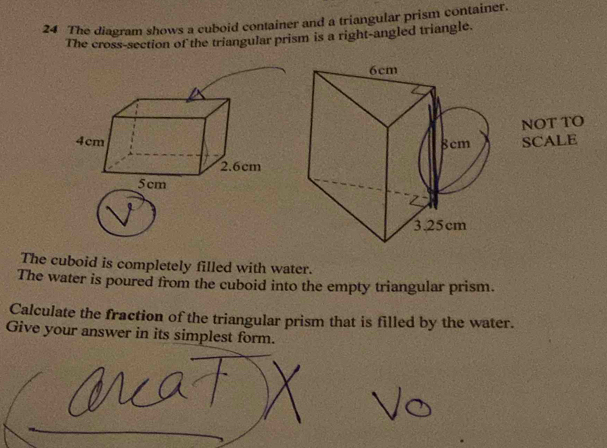 24 The diagram shows a cuboid container and a triangular prism container.
The cross-section of the triangular prism is a right-angled triangle.
6cm
4cm
8cm
NOT TO
SCALE
2.6cm
5cm
3.25cm
V
The cuboid is completely filled with water.
The water is poured from the cuboid into the empty triangular prism.
Calculate the fraction of the triangular prism that is filled by the water.
Give your answer in its simplest form.
area T X Vo